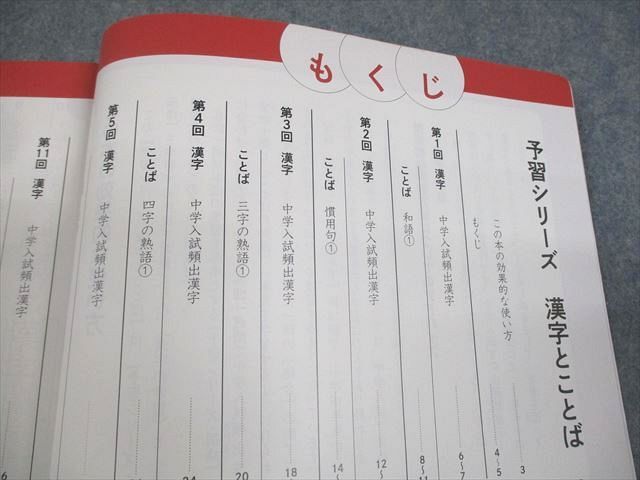 もくじ
予習シリーズ 漢字とことば
この本の効果的な使い方 4~5
もくじ 3
第1回 漢字 中学入試頻出漢字 6~7
ことば 和語① 8~
第2回 漢字 中学入試頻出漢字 12~
ことば 慣用句① 14~
第3回 漢字 中学入試頻出漢字 18
ことば 三字の熟語① 20
第4回 漢字 中学入試頻出漢字
ことば 四字の熟語①
第5回 漢字 中学入試頻出漢字
第11回 漢字 中学入試頻出漢字